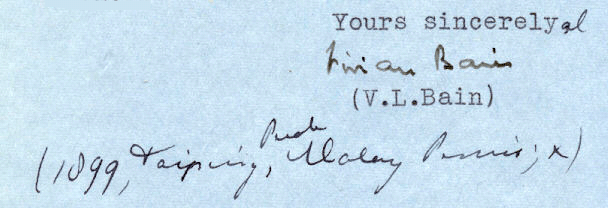 Yours sincerely
Vivian Bain
(V.L.Bain)
(1899, Taiping, Perak, Malay Penins; x)